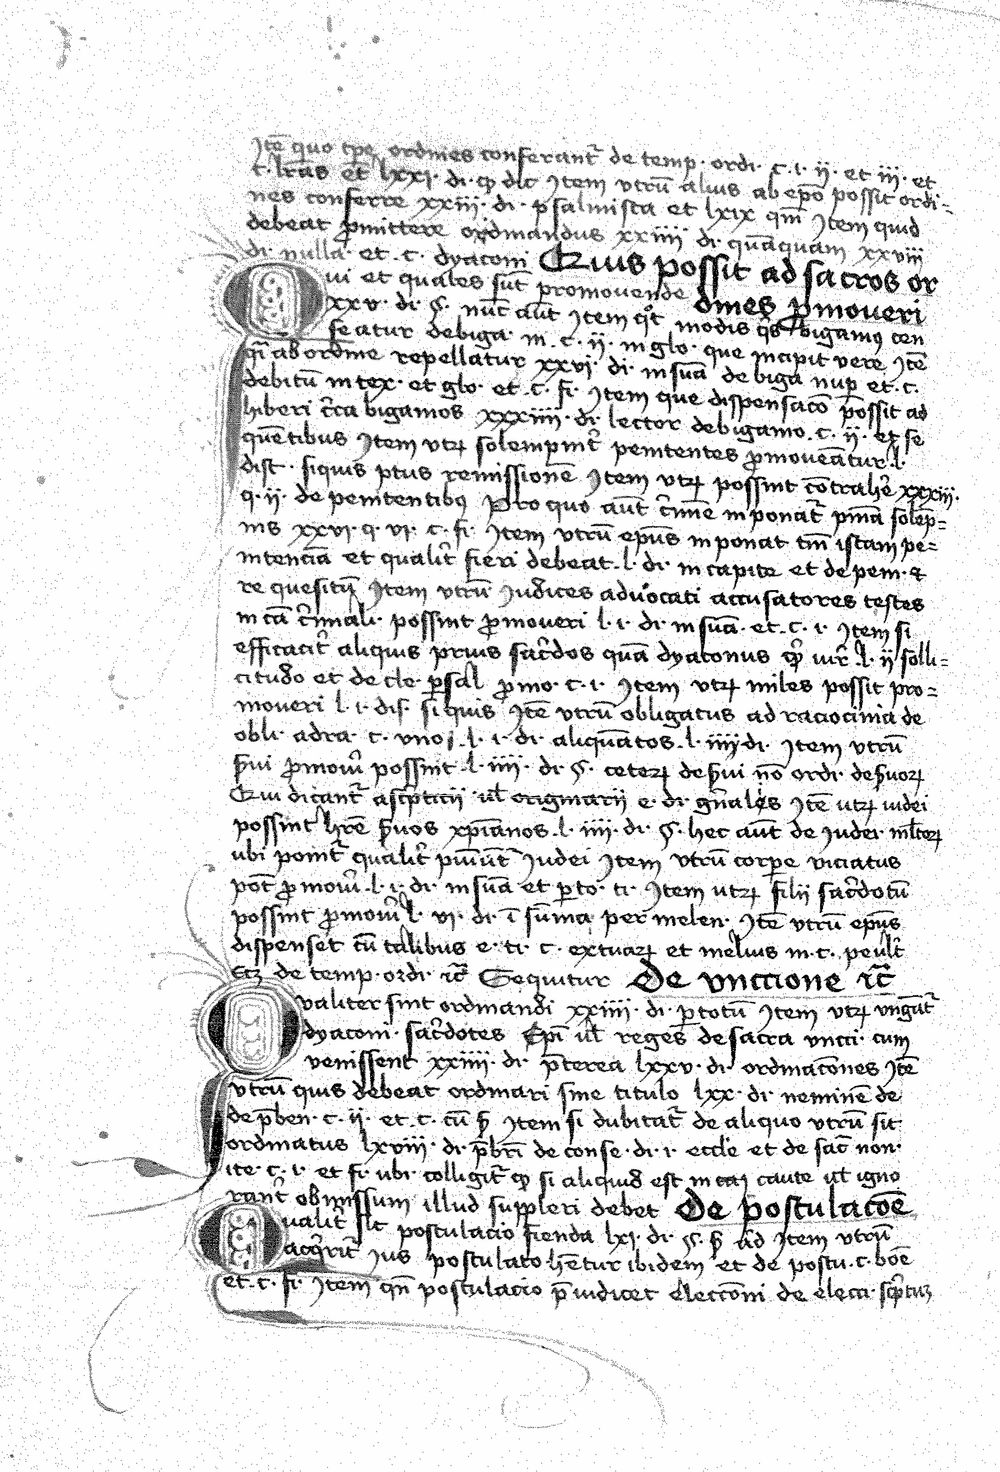 Itē quo tp̄e ordines conferant᷑ de temp. ordi. c. i. ij. et iij. et
t. lr̄as et lxxi. di. ꝙ dic̄ Item vtrū alius ab ep̄o possit ordi-
nes conferre xxiij. di. psalmista et lxix qm̄ Item quid
debeat ꝓmittere ordinandus xxiiij di. quāquam xxviij
di. nulla. et .c. dyaconi Quis possit ad sacros or
vi et quales sūt promovende dines ꝓmoveri
xxv. di. §. nūc aūt Item q͛t modis q͛s bigamꝰ cen
seatur de biga. in .c. ij. in glo. que incipit vere Itē
q̄ ab ordine repellatur xxvi. di. in suā de biga nup̄ et .c.
debitū in tex. et glo. et .c. fi. Item que dispensacō possit ad
hiberi c̄ca bigamos xxxiiij. di. lector de bigamo .c. ij. et se
quētibus Item vtꝝ solempnit᷑ penitentes ꝓmoveātur .l.
dist. siquis ptus remissionē Item vtꝝ possint cōtrahe᷑ xxxiij.
q. ij. de penitentibꝰ Pro quo aūt c̄mīe inponat᷑ pn̄ia solēp-
nis xxvi. q. vi. c. fi. Item vtrū ep̄us inponat tm̄ istam pe-
nitenciā et qualit᷑ fieri debeat .l. di. in capite et de peni. &
re quesitū Item vtrū Iudices advocati accusatores testes
in cā c̄minali possint ꝓmoveri l. i. di. in suā. et .c. i. Item si
efficacit᷑ aliquis prius sac᷑dos quā dyaconus ꝙ vir᷑ .l. ij solli-
citudo et de cle. ꝑ sal ꝓmo. c. i. Item vtꝝ miles possit pro-
moveri l. i. dis. si quis Itē vtrū obligatus ad raciocinia de
obli. ad ra. c. vno .l. i. di. aliquātos .l. iiij di. Item vtrū
s̄vi ꝓmov᷑i possint .l. iiij. di. §. ceteꝝ de s̄vi nō ordi. de s̄voꝝ
Qui dicant᷑ asc̄pticij vl̄ originarij e. di. gn̄ales Itē utꝝ iudei
possint hr̄e s̄vos xp̄ianos .l. iiij. di. §. hec aūt de Iudei. ml̄teꝝ
ubi ponit᷑ qualit᷑ pun̄ūt᷑ Iudei Item vtrū corpe viciatus
pot̄ ꝓmov᷑i .l. i. di. in suā et ꝑ to. ti. Item utꝝ filij sac᷑dotū
possint ꝓmov᷑i l. vi. di. ī sūma per melen. Itē vtrū ep̄us
dispenset cū talibus e. ti. c. extuaꝝ et melius in .c. penlt᷑
de temp. ordi. ⁊c̄ Sequitur De vnccione ⁊c̄
Qualiter sint ordinandi xxiiij. di. ꝑ totū Item vtꝝ vngūt᷑
dyaconi. sac᷑dotes Ep̄i vl̄ reges de sacra vncci. cum
venissent xxiiij. di. p̄terea lxxv. di. ordinacōnes Itē
vtrū quis debeat ordinari sine titulo lxx. di. neminē de
de p̄ben. c. ij. et .c. cū s̄ Item si dubitat᷑ de aliquo vtrū sit
ordinatus lxviij. di. p̄bri᷑ de conse. di. i. eccl̄e et de sac̄ non
ite. c. i. et fi. ubi colligit᷑ ꝙ si aliquid est in caꝫ caute vl̄ igno
rant᷑ obmissum illud suppleri debet De postulacōe
Qualit᷑ sit postulacio fienda lxi. di. §. s̄ ad Item vtrū
acq᷑rit᷑ Ius postulato hētur ibidem et de postu. c. bōe
et .c. fi. Item qn̄ postulacio p̄iudicet eleccōni de elecci. sc̄ptuꝫ